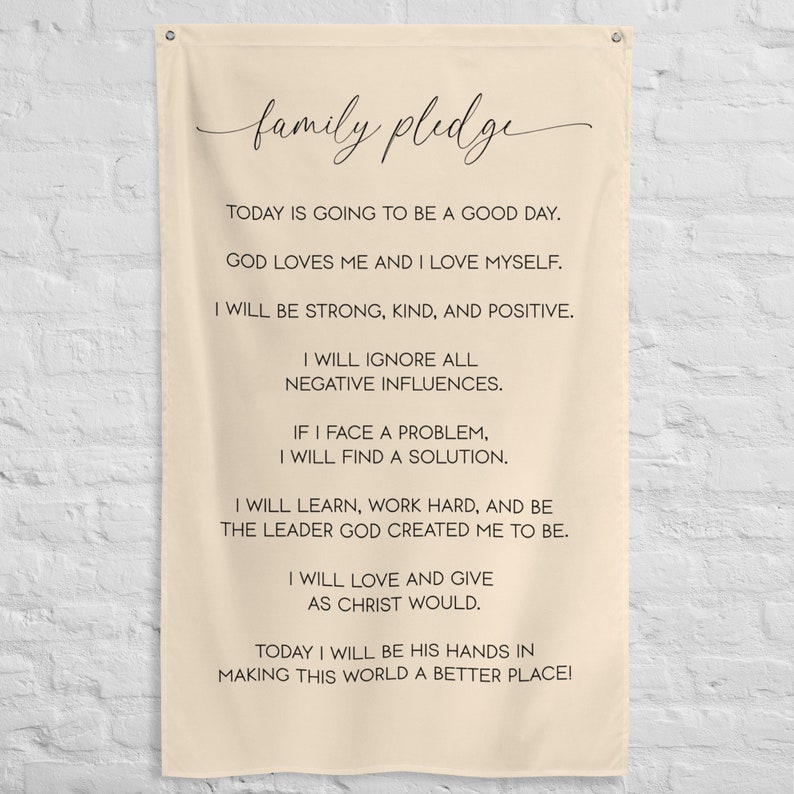 family pledge
TODAY IS GOING TO BE A GOOD DAY.
GOD LOVES ME AND I LOVE MYSELF.
I WILL BE STRONG, KIND, AND POSITIVE.
I WILL IGNORE ALL
NEGATIVE INFLUENCES.
IF I FACE A PROBLEM,
I WILL FIND A SOLUTION.
I WILL LEARN, WORK HARD, AND BE
THE LEADER GOD CREATED ME TO BE.
I WILL LOVE AND GIVE
AS CHRIST WOULD.
TODAY I WILL BE HIS HANDS IN
MAKING THIS WORLD A BETTER PLACE!